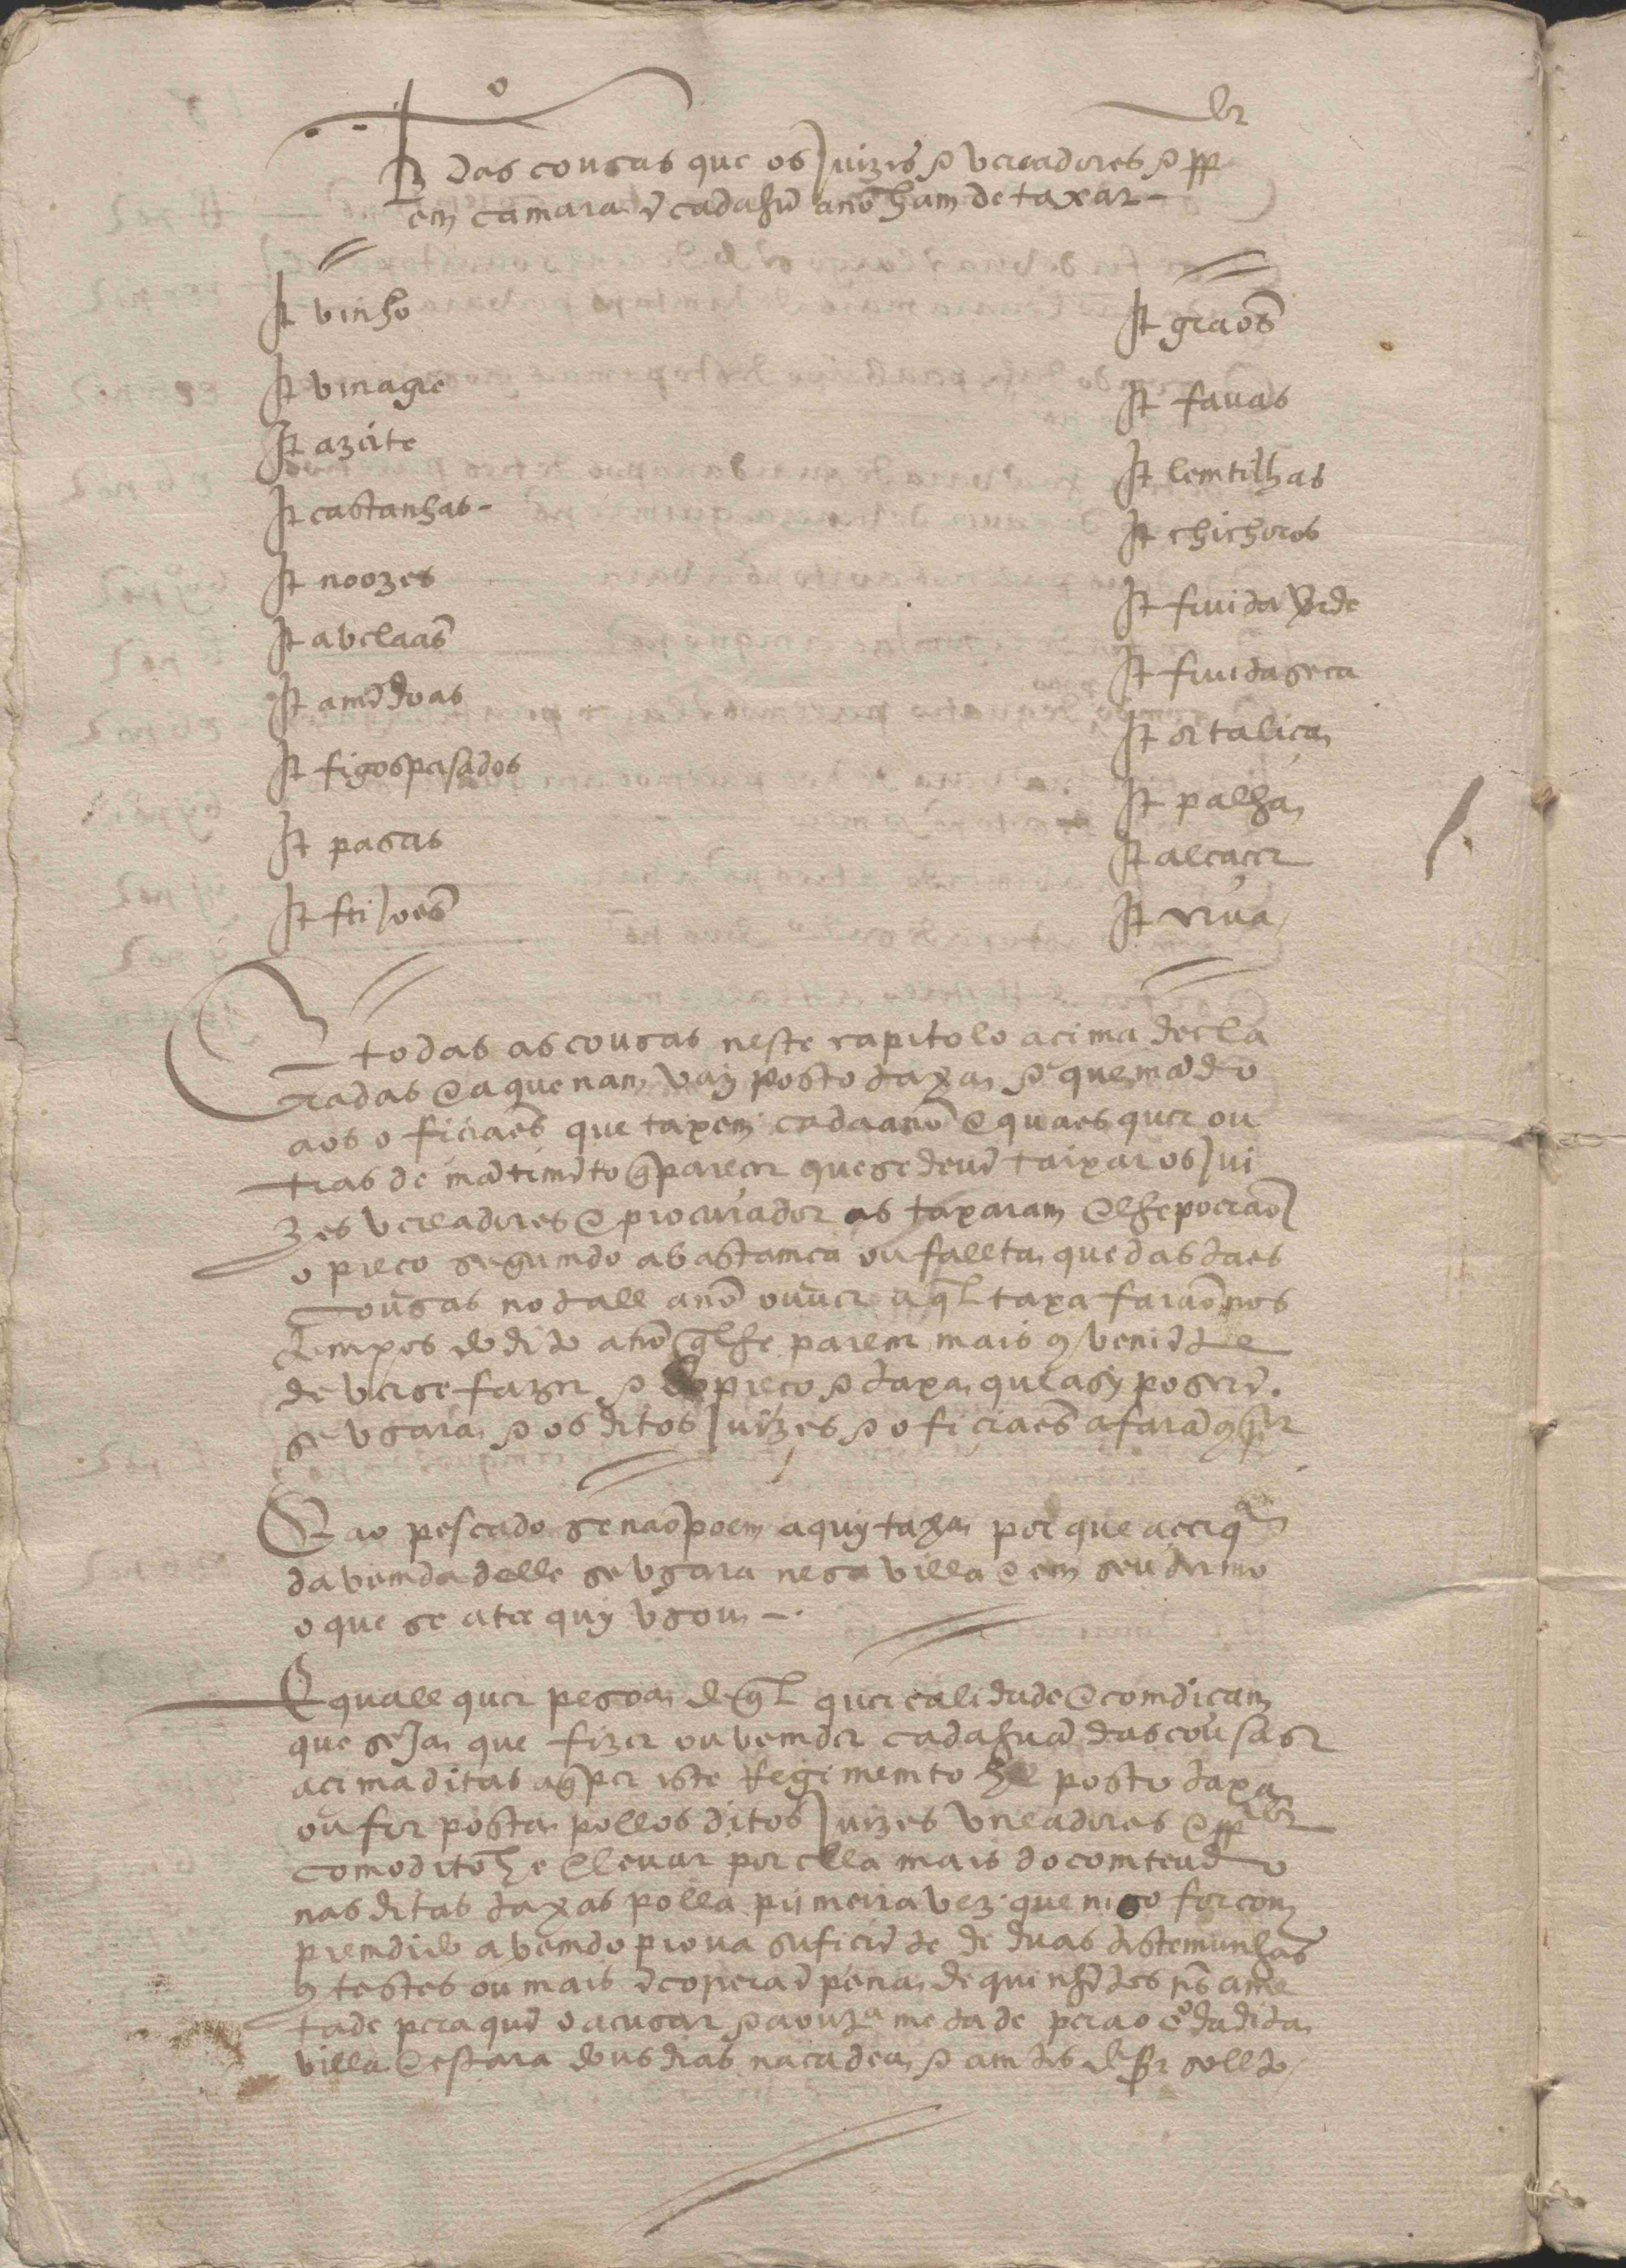 das cousas que os Juizes e vereadores e pp dor
em camara ẽ cadahũ anõ ham de taxar –
It vinho
It vinagre
It azeite
It castanhas –
It noozes
It avelaãs
It amẽdoas
It figos pasados
It pasas
It feiJoẽs
It graõs
It favas
It lemtilhas
It chicharos
It fruita verde
It fruita seca
It ortaliça
It palha
It alcacer
It erva
E todas as cousas neste capitolo acima decla
radas e a que nam vay posto taxa e que mãdo
aos oficiaes que taxem cada anõ e quaes quer ou
tras de mãtimẽto q̃ parecer que se devẽ taixar os Jui
zes vereadores e procurador as taxaram e lhe poeraõ
o preço segumdo abastamça ou fallta que das taes
cousas no tall anõ ouver a ql taxa faraõ nos
tempos do dito anõ q̃ lhe parecer mais cõveniẽte
de verse fazer e o preço e taxa que asy poserẽ
se usara e os ditos Juizes e oficiaes a farã
E ao pescado se naõ poem aquy taxa por que açerqa
da vemda delle se usara nesa villa e em seu termo
o que se atee quy usou –
E quall quer pesoa de ql quer calidade e comdiçam
que seJa que fizer ou vemder cadahuã das cousas
acima ditas a q̃ per este Regimemto he posto taxa
ou for posta pollos ditos Juizes vereadores e pp dor
como dito he e levar por ella mais do comteudo
nas ditas taxas polla primeira vez que niso for com
premdido avemdo prova suficiẽte de duas testemunhas
cõtestes ou mais ẽcorrera ẽ pena de quinhẽtos rs ame
tade pera quẽ o acusar e a outra metade pera o cõ da dita
villa e estara dous dias na cadea e amtes de ser sollto